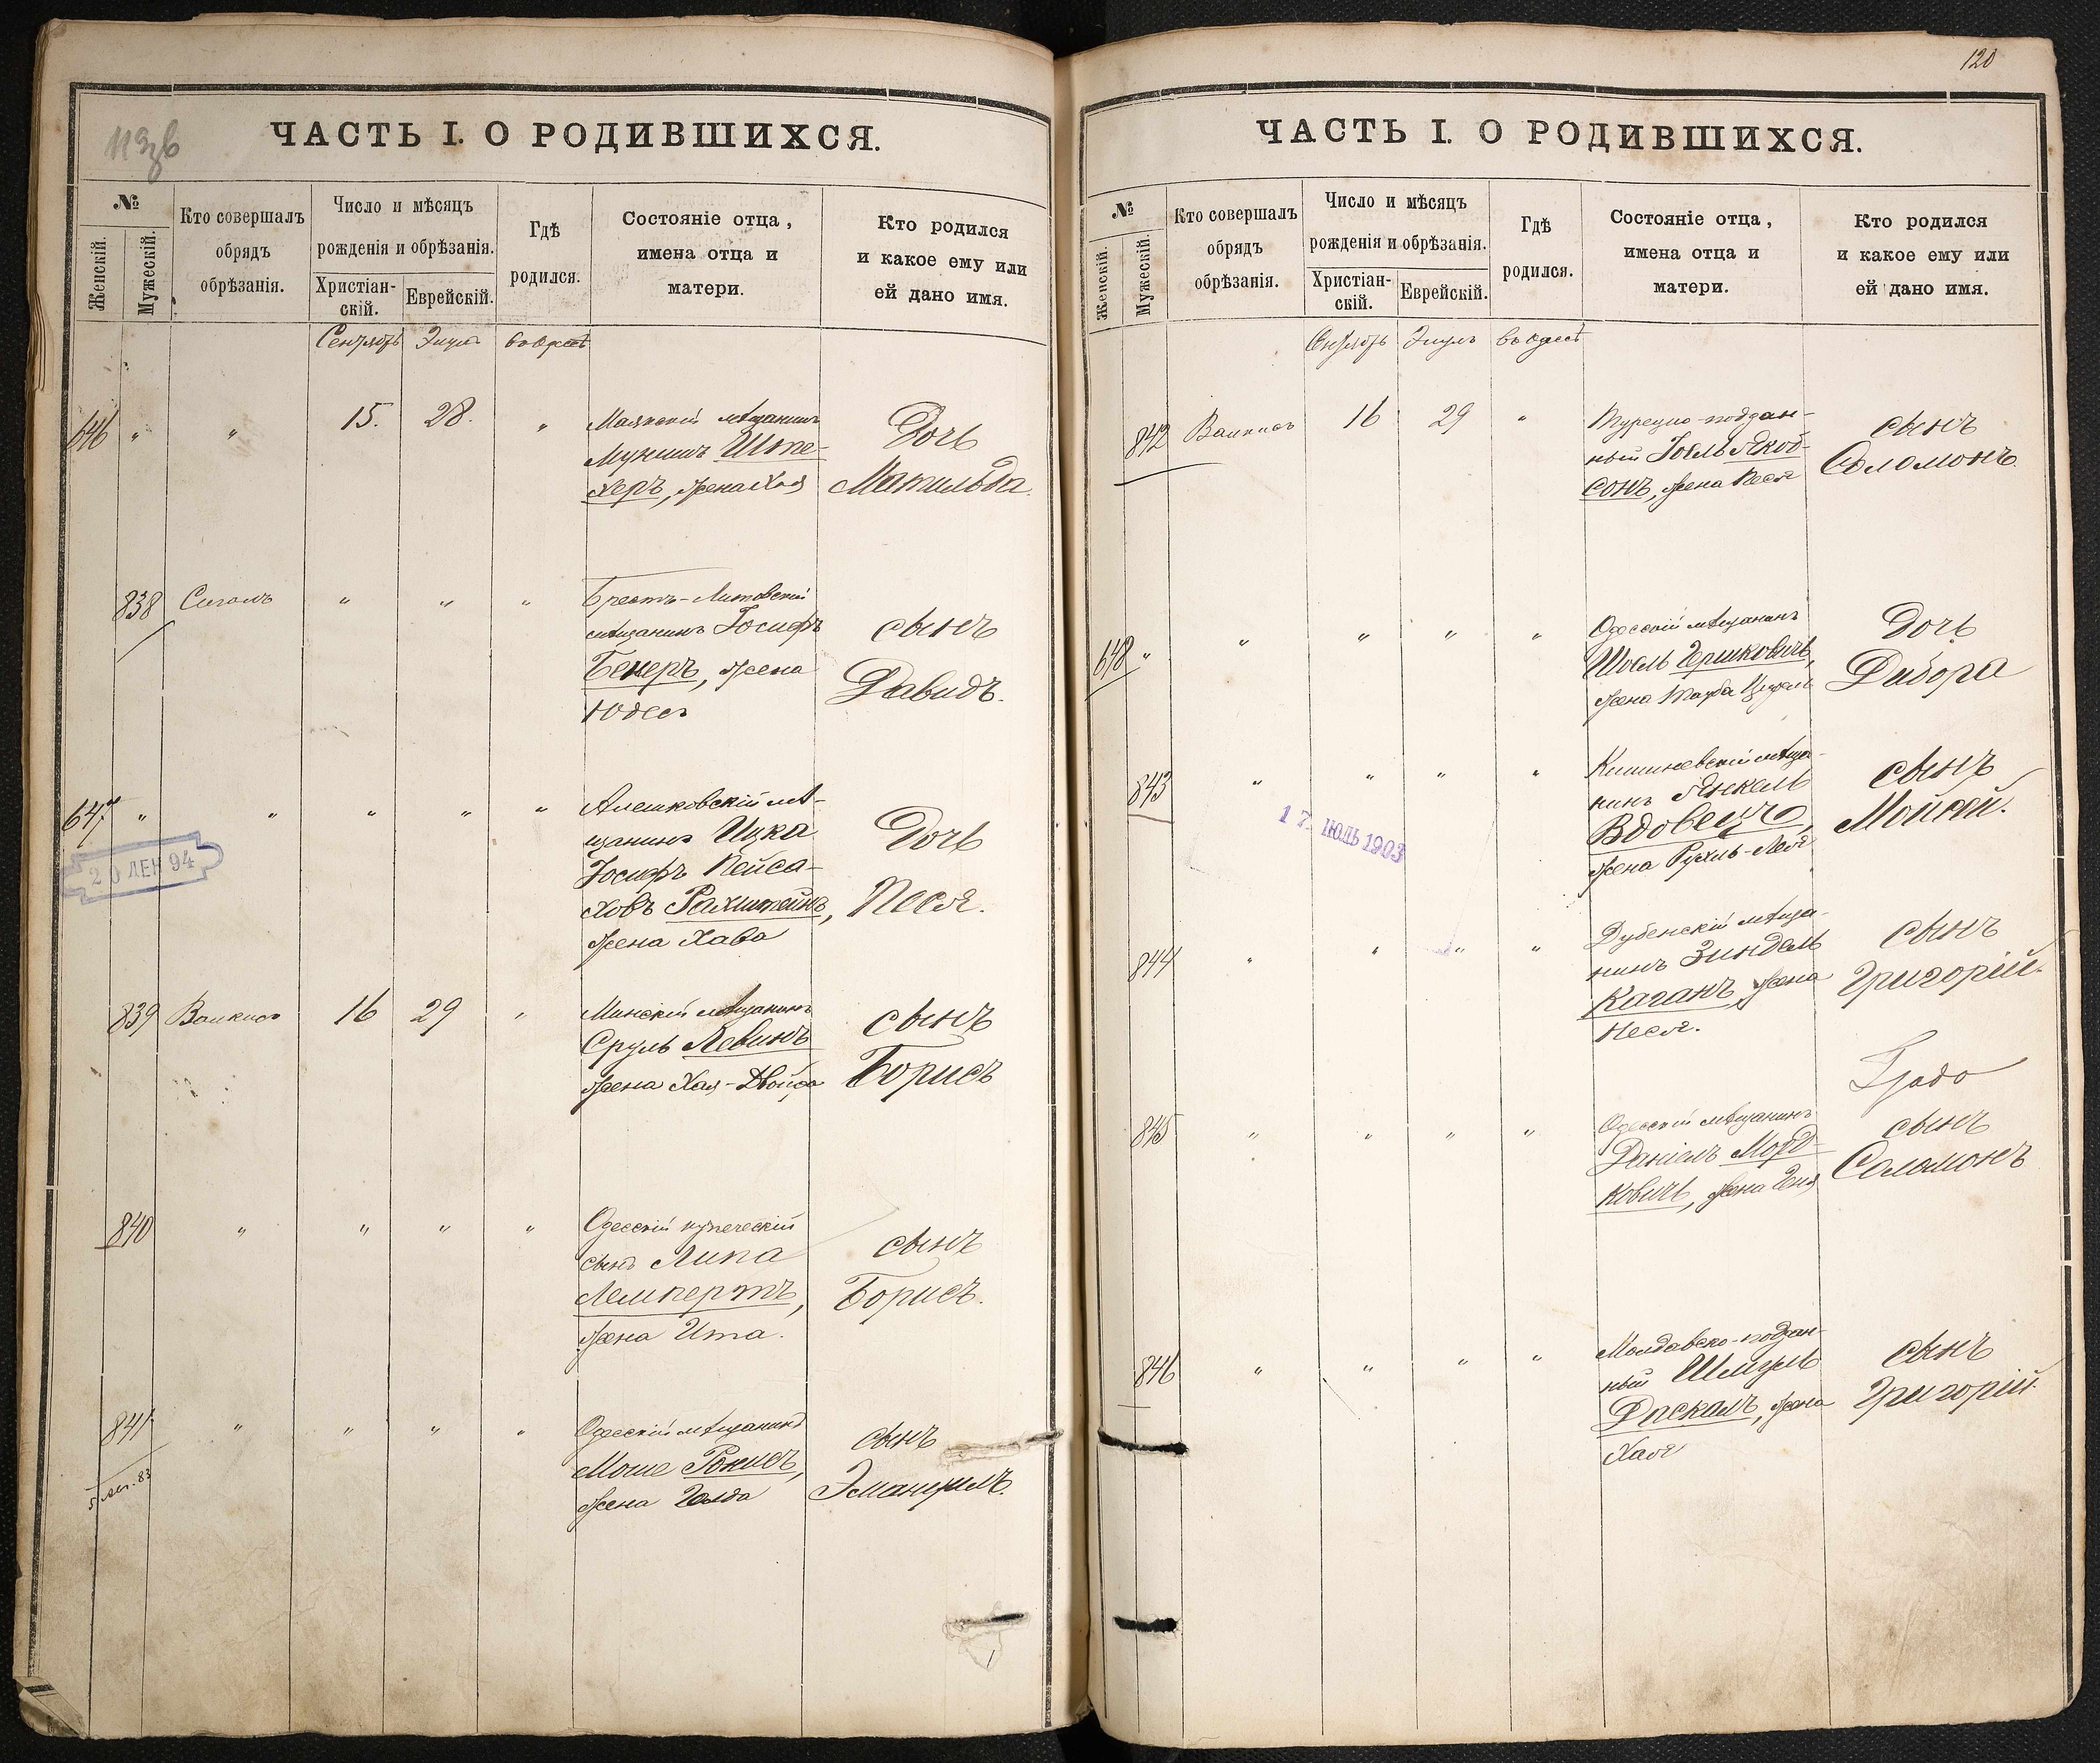 119 об
ЧАСТЬ I. О РОДИВШИХСЯ.
№
Женскій.
Мужескій.
Кто совершалъ
обрядъ
обрѣзанія.
Число и мѣсяцъ
рожденія и обрѣзанія.
Христіан-
скій.
Еврейскій.
Гдѣ
родился.
Состояніе отца,
имена отца и
матери.
Кто родился
и какое ему или
ей дано имя.
Сентябрь Элулъ въ Одессѣ
646 " " 15. 28. "
Маякскій мѣщанинъ
Шпе-
херъ, жена Хая
Дочь
Матильда.
838 Сигалъ " " "
Брестъ-Литовскій
мѣщанинъ Іосифъ
Бекеръ, жена
Юдесъ
сынъ
Давидъ.
647 " " " " "
Алешковскій мѣ-
щанинъ Ицка
Іосифъ Пейса-
ховъ Рахштейнъ,
жена Хава
Дочь
Песя.
20 ДЕК 94
839 16 29 "
Минскій мѣщанинъ
Сруль Левинъ
жена Хая-Двойра
сынъ
Борисъ
840 " " " "
Одесскій купеческій
сынъ Липа
Лемпертъ,
жена Ита.
сынъ
Борисъ.
841 " " " "
Одесскій мѣщанинъ
Моше
жена Голда
сынъ
Эмануилъ.
120
ЧАСТЬ I. О РОДИВШИХСЯ.
№
Женскій.
Мужескій.
Кто совершалъ
обрядъ
обрѣзанія.
Число и мѣсяцъ
рожденія и обрѣзанія.
Христіан-
скій.
Еврейскій.
Гдѣ
родился.
Состояніе отца,
имена отца и
матери.
Кто родился
и какое ему или
ей дано имя.
Сентябрь Элулъ въ Одессѣ
842 16 29 "
Турецко-поддан-
ный Іоель Якоб-
сонъ, жена Песя
сынъ
Соломонъ.
648 " " " " "
Одесскій мѣщанинъ
Шоель Гершковичъ,
жена
Дочь
Дибора
843 " " " "
Кишиневскій мѣща-
нинъ Янкель
Вдовецъ,
жена Рухль-Лея
сынъ
Мойсей.
17 ІЮЛЬ 1903
844 " " " "
Дубенскій мѣща-
нинъ Зиндель
Каганъ, жена
Песя.
сынъ
Григорій.
845 " " " "
Одесскій мѣщанинъ
Даніелъ Морд-
ковичъ, жена Геня
сынъ
Соломонъ
846 " " " "
Молдавско-поддан-
ный Шмуль
Даскалъ, жена
Хая
сынъ
Григорій.